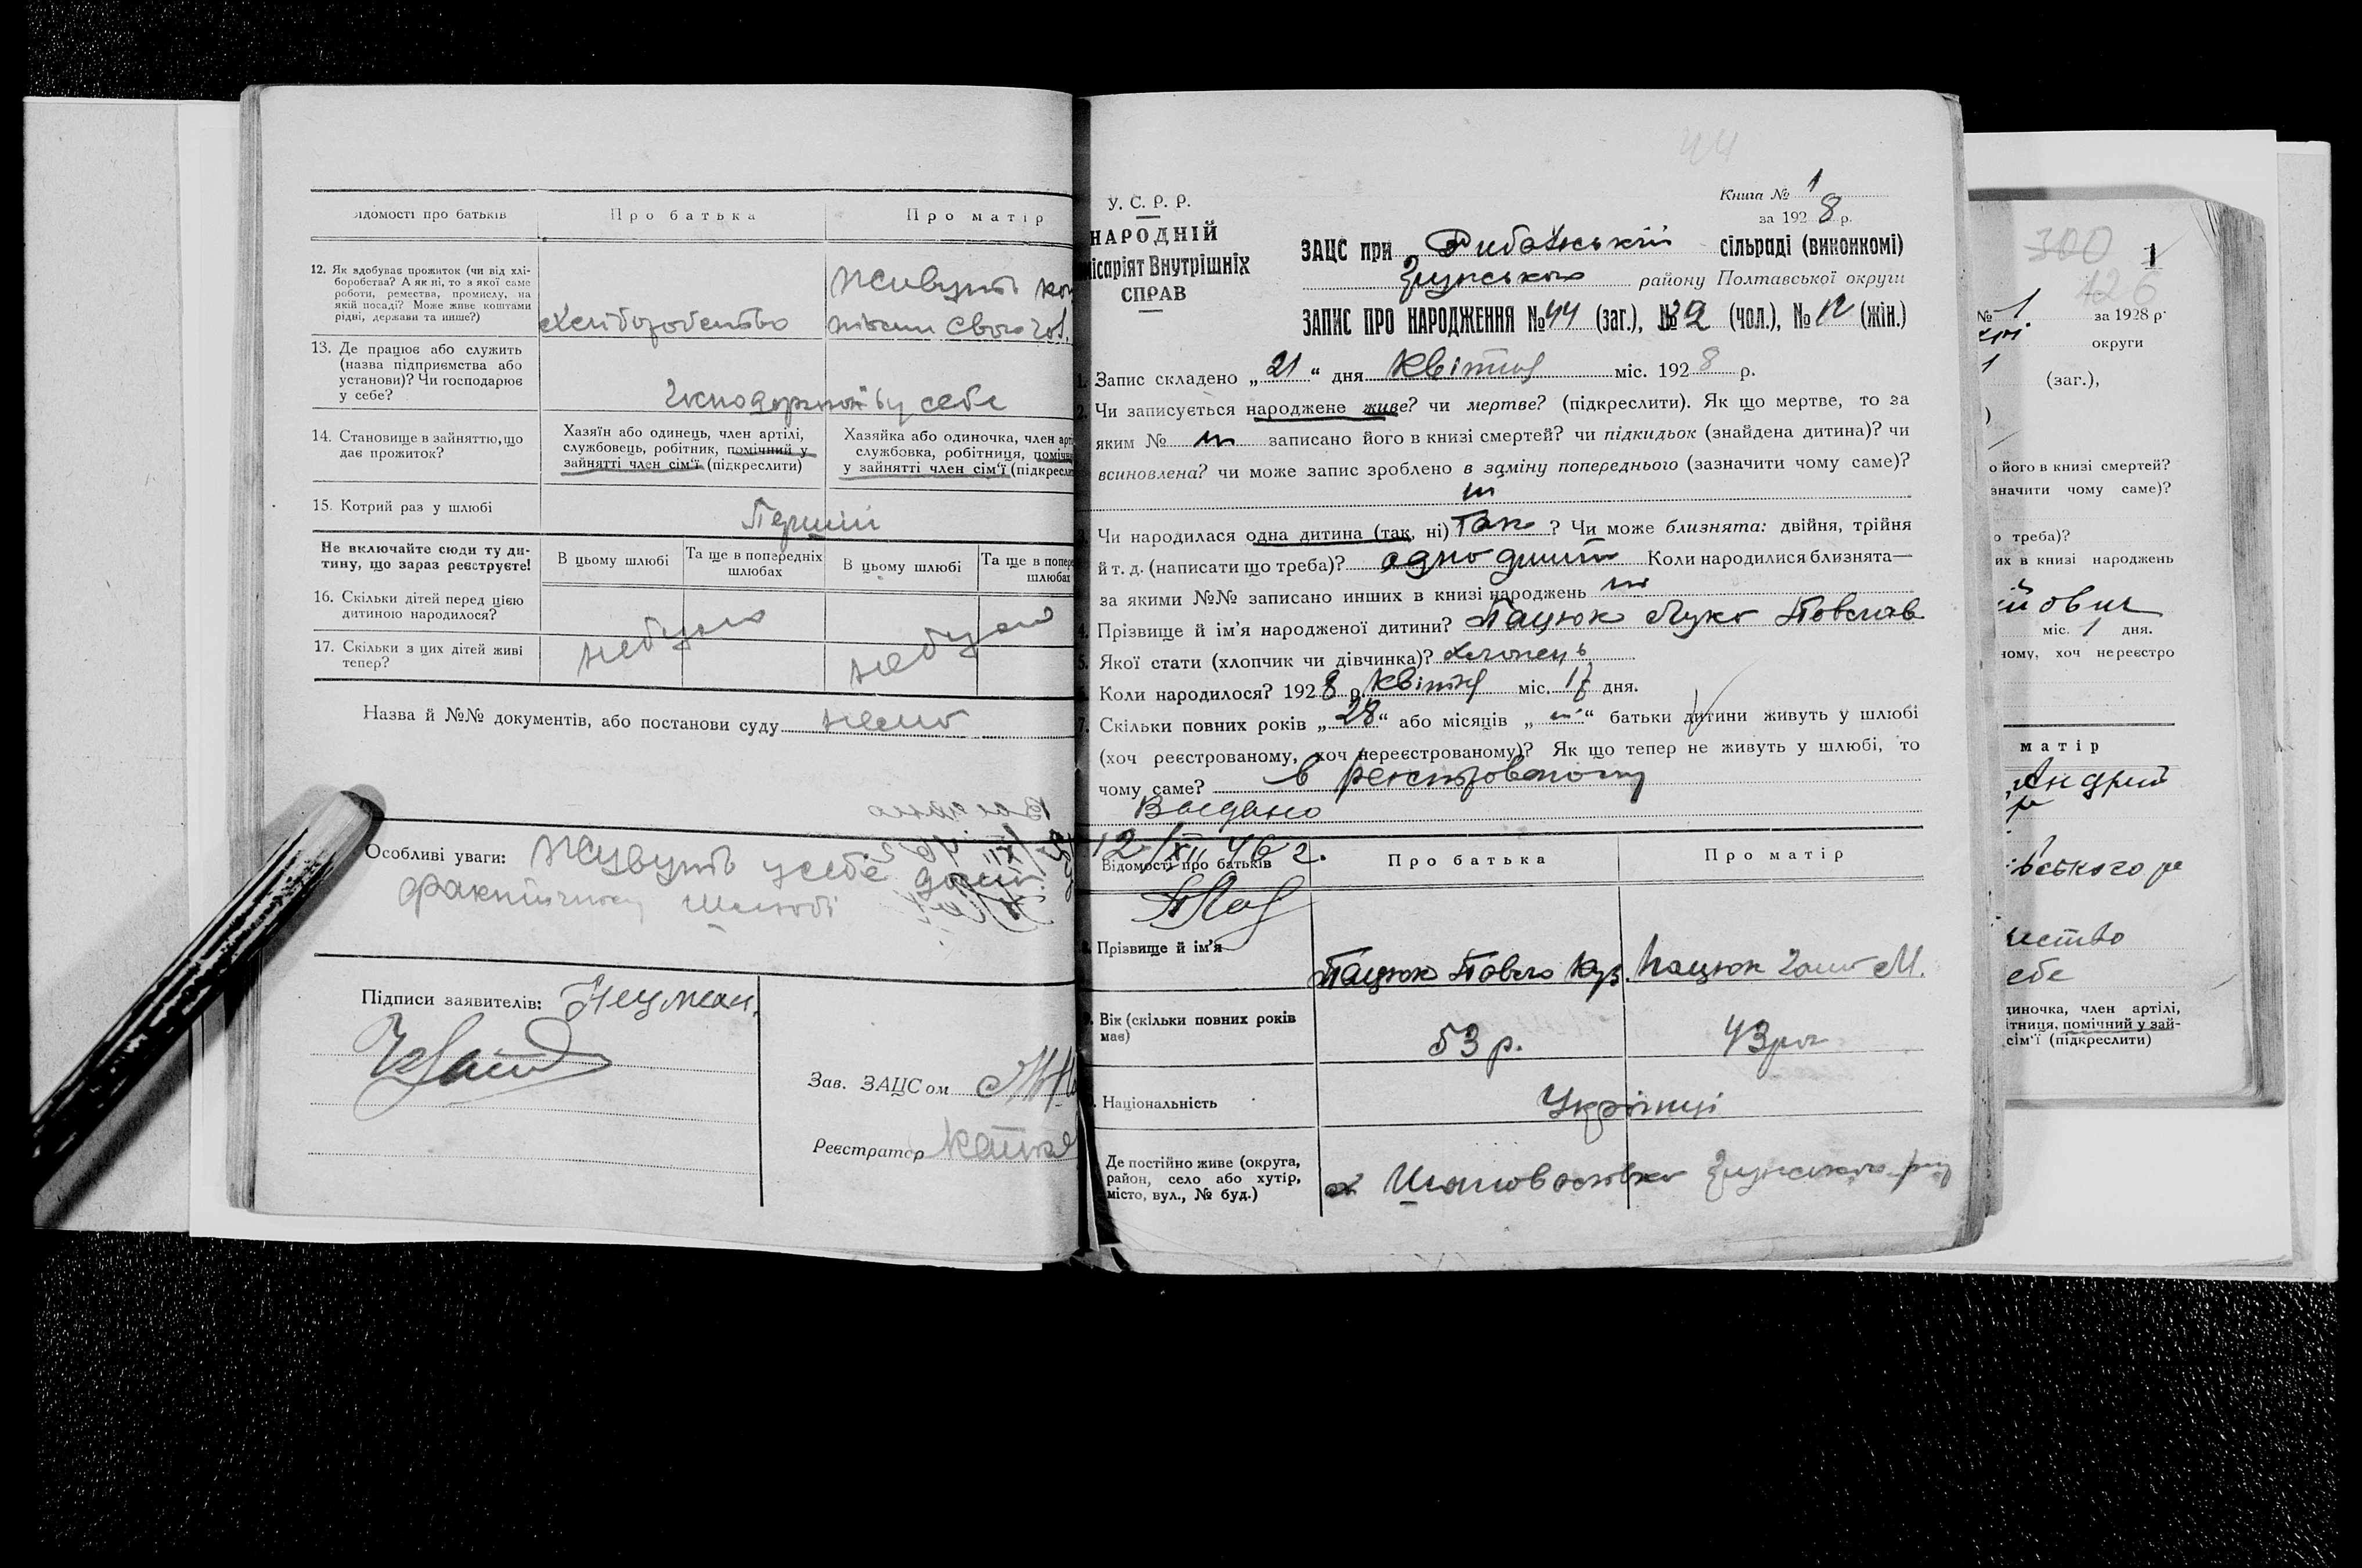 ідомості про батьків
Про батька
Про матір
12. Як здобуває прожиток (чи від хлі-
боробства? А як ні, то з якої саме
роботи, ремества, промислу, на
якій посаді? Може живе коштами
рідні, держави та инше?)
Хліборобство
Живуть
свого
13. Де працює або служить
(назва підприємства або
установи)? Чи господарює
у себе?
у себе
14. Становище в зайняттю, що
дає прожиток?
Хазяїн або одинець, член артілі,
службовець, робітник, помічний у
зайнятті член сім'ї (підкреслити)
Хазяйка або одиночка, член арті
службовка, робітниця, поміч
у зайнятті член сім'ї (підкресли
15. Котрий раз у шлюбі
Перший
Не включайте сюди ту ди-
тину, що зараз реєструєте!
В цьому шлюбі
Та ще в попередніх
шлюбах
В цьому шлюбі
Та ще в попере
шлюбах
16. Скільки дітей перед цією
дитиною народилося?
17. Скільки з цих дітей живі
тепер?
небуло
небуло
Назва й №№ документів, або постанови суду нема
Особливі уваги: Живуть у себе дома
фактичному шлюбі
Підписи заявителів: Неузман.
Зав. ЗАЦСом
Реєстратор
44
У. С. Р. Р.
НАРОДНІЙ
місаріят Внутрішніх
СПРАВ
Книга № 1
за 1928 р.
ЗАЦС при сільраді (виконкомі)
району Полтавської округи
ЗАПИС ПРО НАРОДЖЕННЯ № 44 (заг.), № (чол.), № 12 (жін.)
1. Запис складено „21“ дня Квітня міс. 1928 р.
2. Чи записується народжене живе? чи мертве? (підкреслити). Як що мертве, то за
яким № записано його в книзі смертей? чи підкидьок (знайдена дитина)? чи
всиновлена? чи може запис зроблено в заміну попереднього (зазначити чому саме)?
3. Чи народилася одна дитина (так, ні) Так ? Чи може близнята: двійня, трійня
й т. д. (написати що треба)? одно дитя Коли народилися близнята—
за якими №№ записано инших в книзі народжень
4. Прізвище й ім'я народженої дитини? Пацюк Лука Павлов
5. Якої стати (хлопчик чи дівчинка)? хлопець
Коли народилося? 1928 р. Квітня міс. 17 дня.
7. Скільки повних років „28“ або місяців „ “ батьки дитини живуть у шлюбі
(хоч реєстрованому, хоч нереєстрованому)? Як що тепер не живуть у шлюбі, то
чому саме? в реєстрованому
Выдано
12/XII 46 г.
Відомості про батьків
Про батька
Про матір
Прізвище й ім'я
Пацюк Павло Куз.
Пацюк М.
9. Вік (скільки повних років
має)
53 р.
43 ро
Національність
Українці
Де постійно живе (округа,
район, село або хутір,
місто, вул., № буд.)
300
126
1
№ 1
за 1928 р.
округи
1
(заг.),
о його в книзі смертей?
значити чому саме)?
о треба)?
их в книзі народжень
міс. 1 дня.
ному, хоч нереєстро
матір
Андрий
ського ра
ство
себе
диночка, член артілі,
ітниця, помічний у зай-
сім'ї (підкреслити)